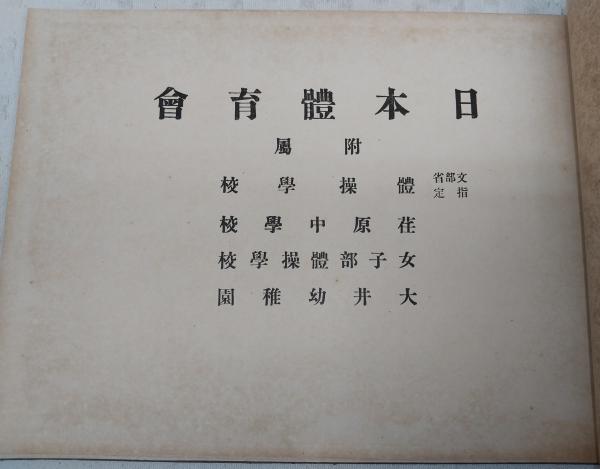 日本體育會
附屬
文部省指定 體操學校
荏原中學校
女子部體操學校
大井幼稚園